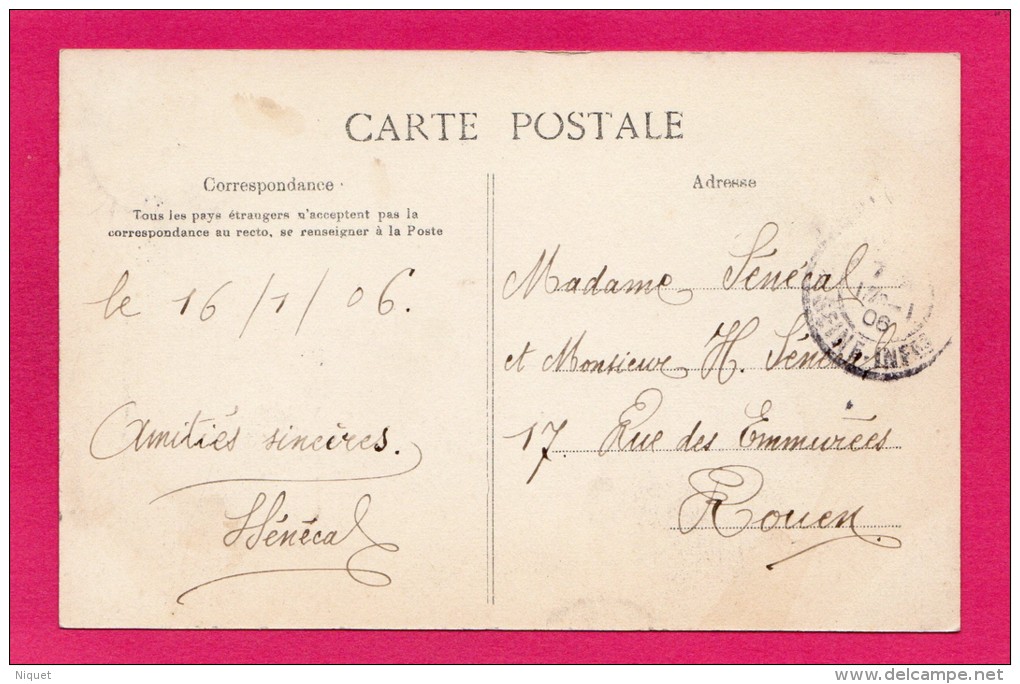 CARTE POSTALE
Correspondance
Tous les pays étrangers n'acceptent pas la
correspondance au recto, se renseigner à la Poste
le 16/1/06.
Amitiés sincères.
Sénécal
Adresse
Madame Sénécal
et Monsieur H. Sénécal
17. Rue des Emmurées
Rouen
06
SEINE-INFRE
Niquet
delcampe.net